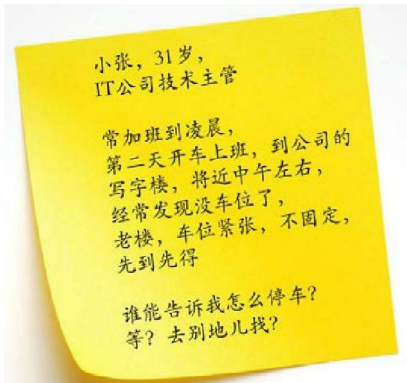 小张，31岁，
IT公司技术主管
常加班到凌晨，
第二天开车上班，到公司的
写字楼，将近中午左右，
经常发现没车位了，
老楼，车位紧张，不固定，
先到先得
谁能告诉我怎么停车？
等？去别地儿找？